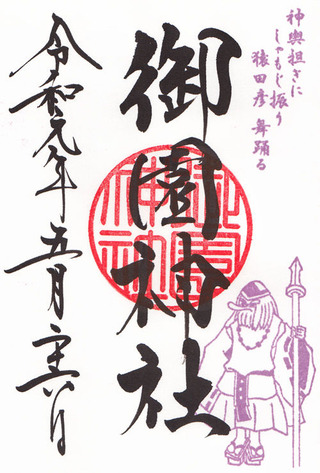 神輿担ぎに
しゃもじ振り
猿田彦 舞踊る
御園神社
令和元年五月